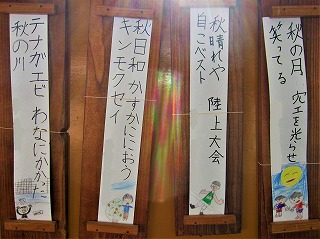 秋の月 空を光らせ
笑ってる
秋晴れや 陸上大会
自こベスト
秋日和 かすかににおう
キンモクセイ
テナガエビ わなにかかった
秋の川